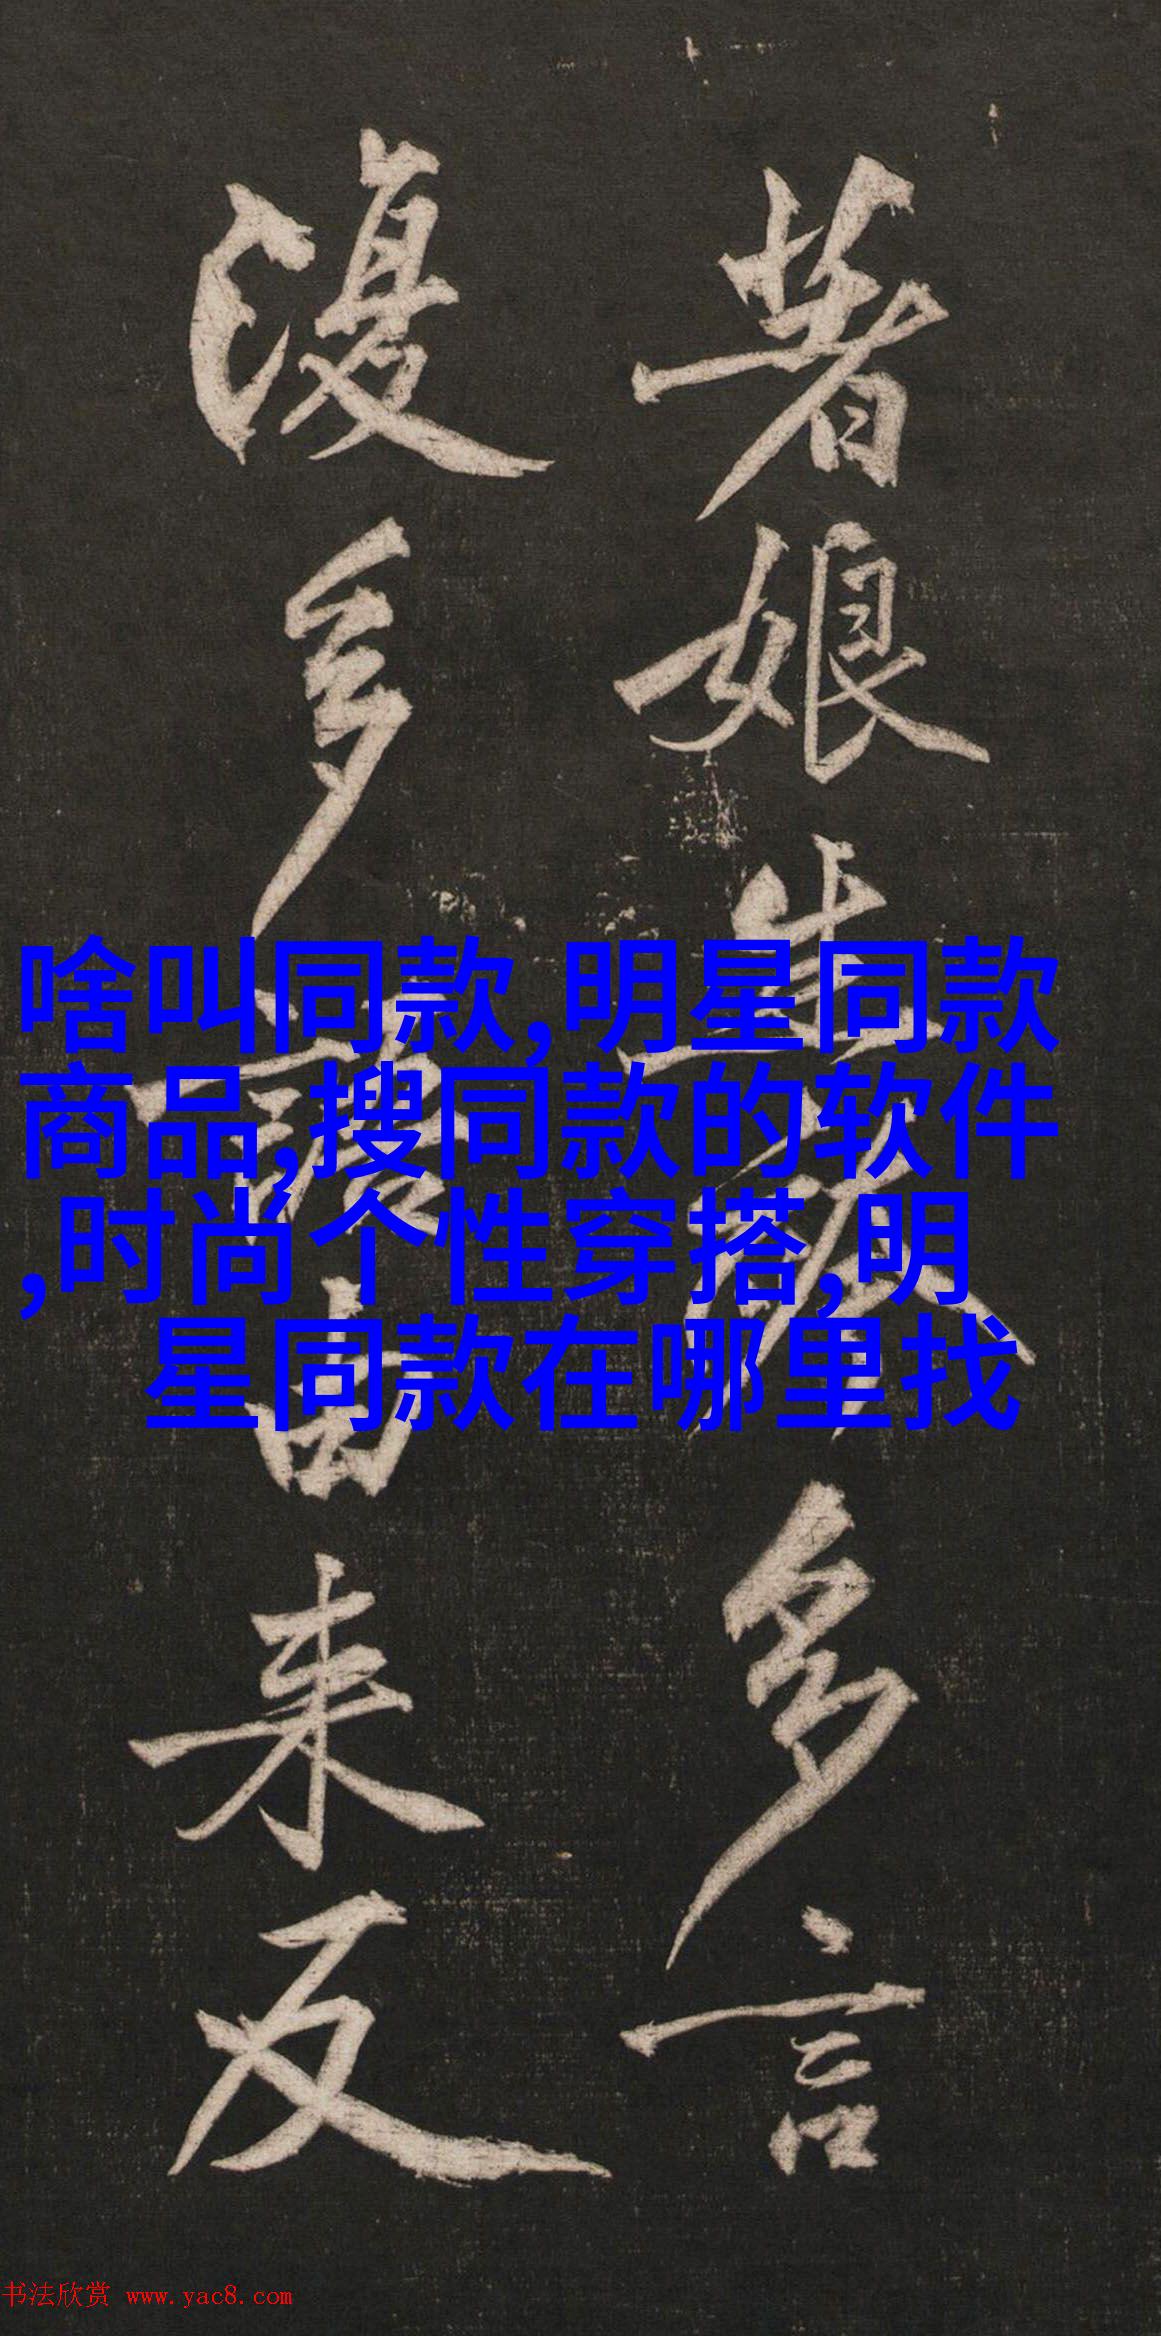 著娘生 多言
復多語由来反
啥叫同款,明星同款
商品,搜同款的软件
,时尚个性穿搭,明
星同款在哪里找
书法欣赏 www.yac8.com